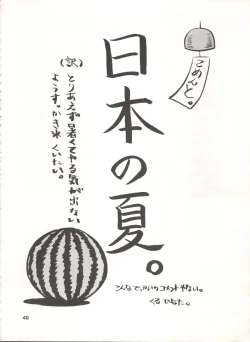 こめんと。
日本の夏。
(訳)
とりあえず暑くてやる気が出ない
ようす。かき氷くいたい。
こんなでいいのコメントやない。
くるひなた。
46